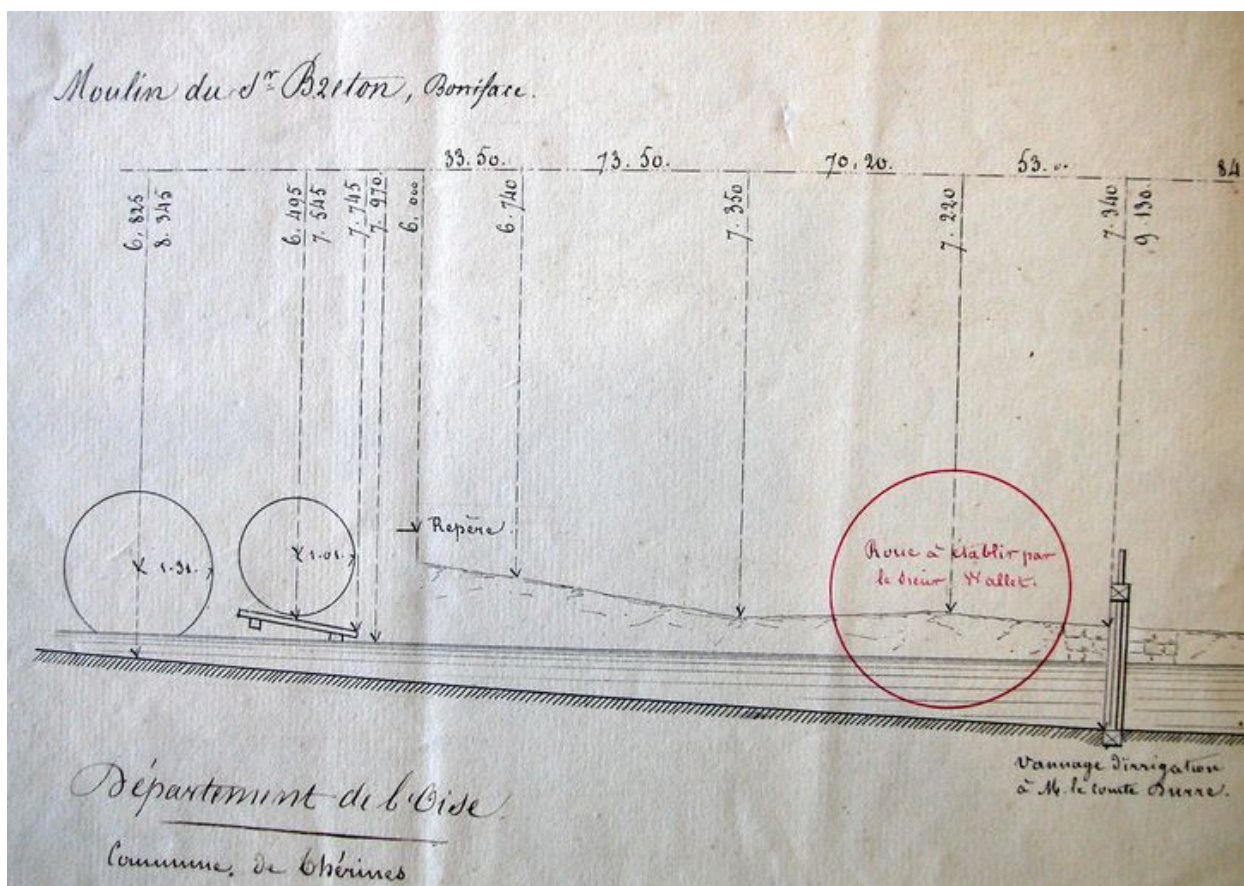 Moulin du Sr Breton, Boniface.
33.50. 73.50. 70.20. 53.00 84
6.825
8.345
6.495
7.545
7.745
7.970
6.000
6.740
7.350
7.220
7.340
9.130.
Repère
1.31.
1.01.
Roue à établir par
le sieur Wallet.
Vannage d'irrigation
à M. le comte Durre.
Département de l'Oise.
Commune de Thérines